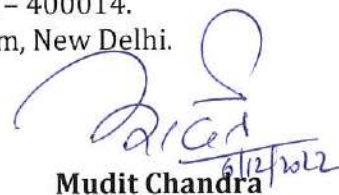 – 400014.
m, New Delhi.
6/12/2022
Mudit Chandra